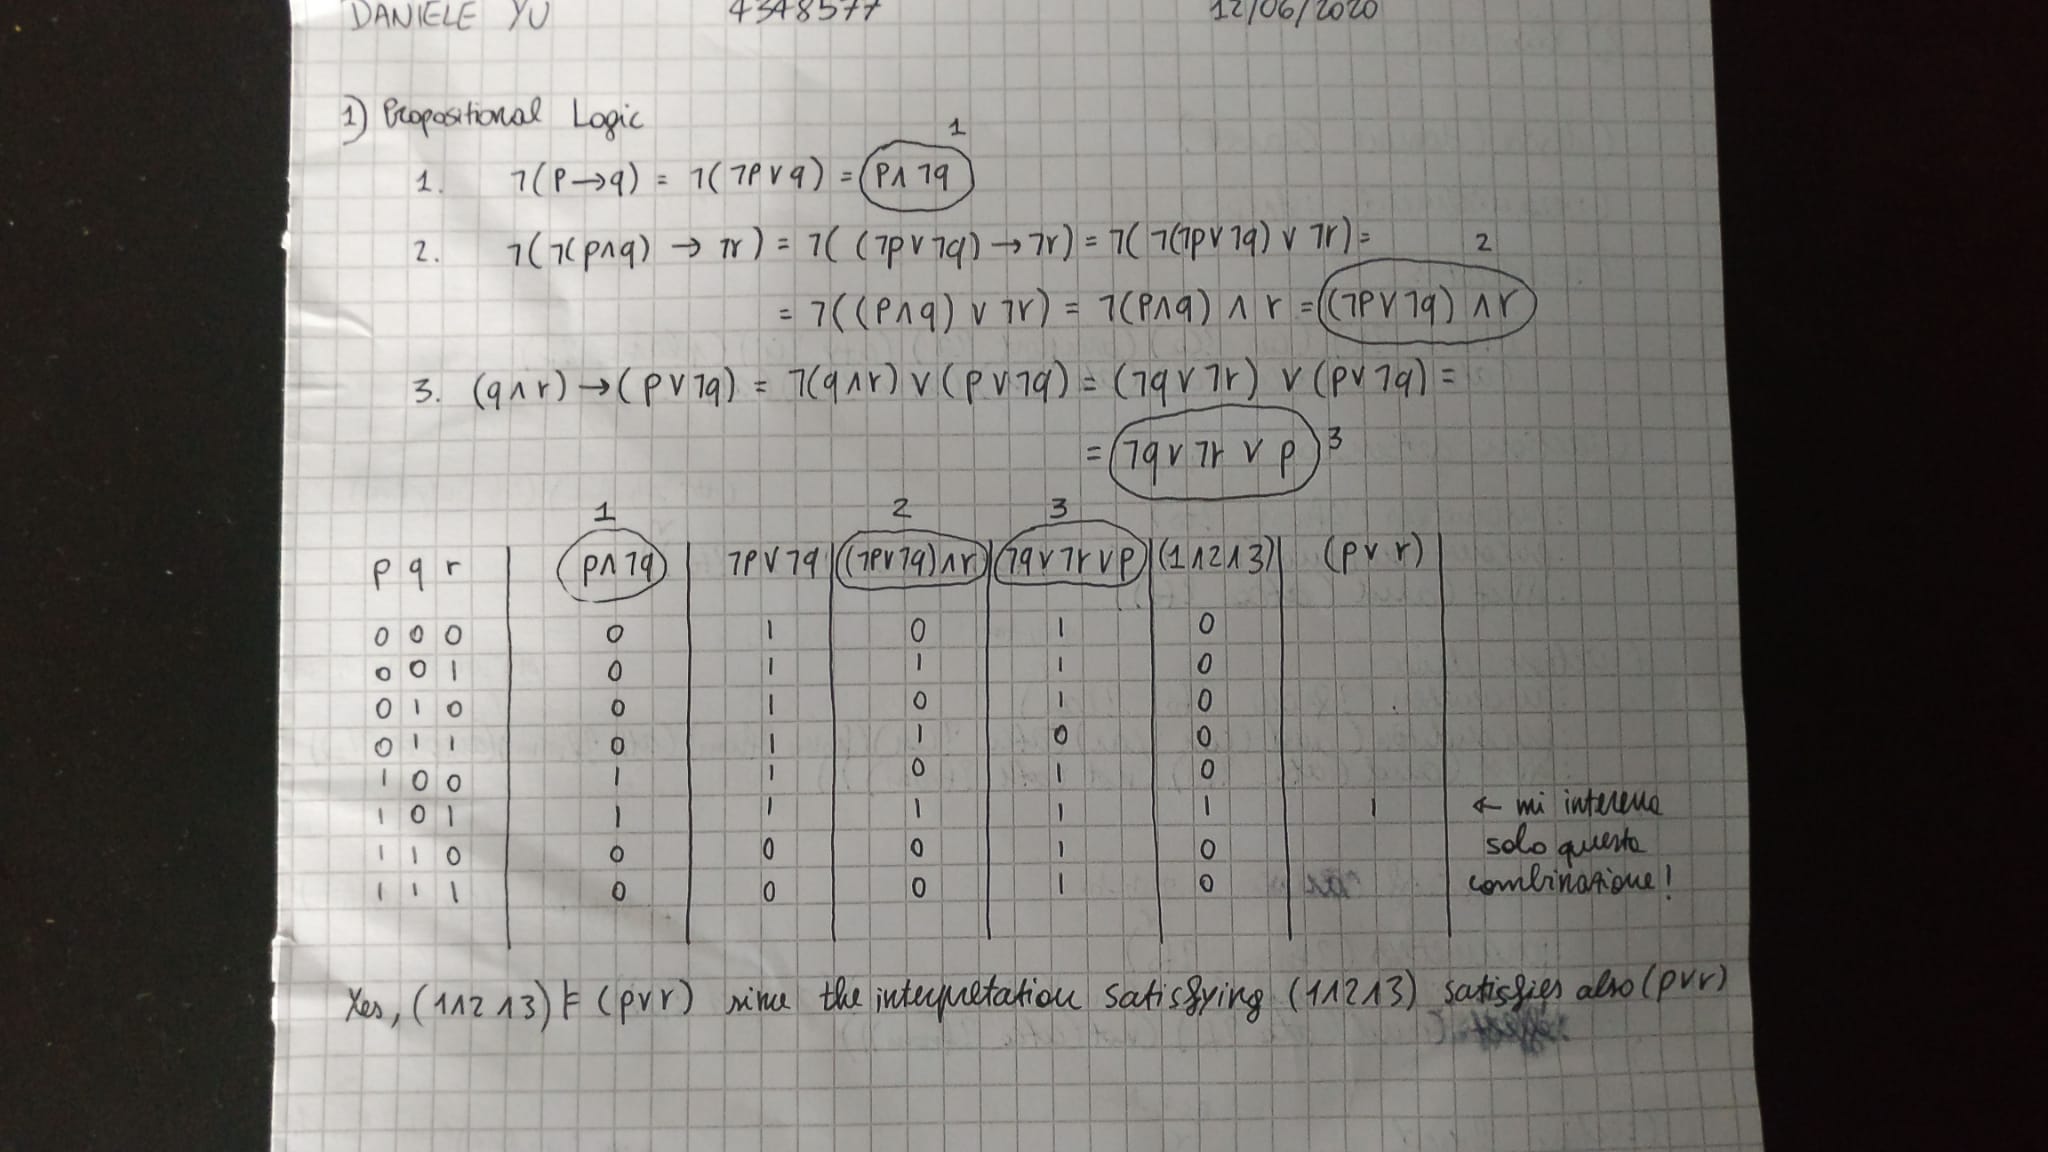 DANIELE YU 4348577 12/06/2020
1) Propositional Logic
1
1. ¬(p→q) = ¬(¬p∨q) = p∧¬q
2. ¬(¬(p∧q) → ¬r) = ¬((¬p∨¬q)→¬r) = ¬(¬(¬p∨¬q) ∨ ¬r) = 2
= ¬((p∧q) ∨ ¬r) = ¬(p∧q) ∧ r = (¬p∨¬q) ∧r
3. (q∧r)→(p∨¬q) = ¬(q∧r)∨(p∨¬q) = (¬q∨¬r) ∨ (p∨¬q) =
= ¬q∨¬r∨p 3
1 2 3
p q r p∧¬q ¬p∨¬q (¬p∨¬q)∧r ¬q∨¬r∨p (1∧2∧3) (p∨r)
0 0 0 0 1 0 1 0
0 0 1 0 1 1 1 0
0 1 0 0 1 0 1 0
0 1 1 0 1 1 0 0
1 0 0 1 1 0 1 0
1 0 1 1 1 1 1 1 1 ← mi interessa
1 1 0 0 0 0 1 0 solo questa
1 1 1 0 0 0 1 0 combinazione!
Yes, (1∧2∧3) ⊨ (p∨r) since the interpretation satisfying (1∧2∧3) satisfies also (p∨r)